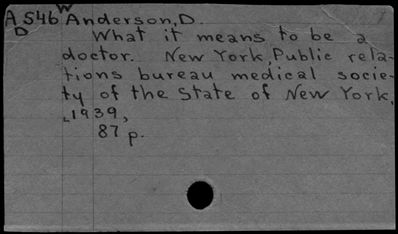 AS46 W Anderson, D.
D What it means to be a
doctor. New York, Public rela-
tions bureau medical socie-
ty of the State of New York,
1939,
87 p.